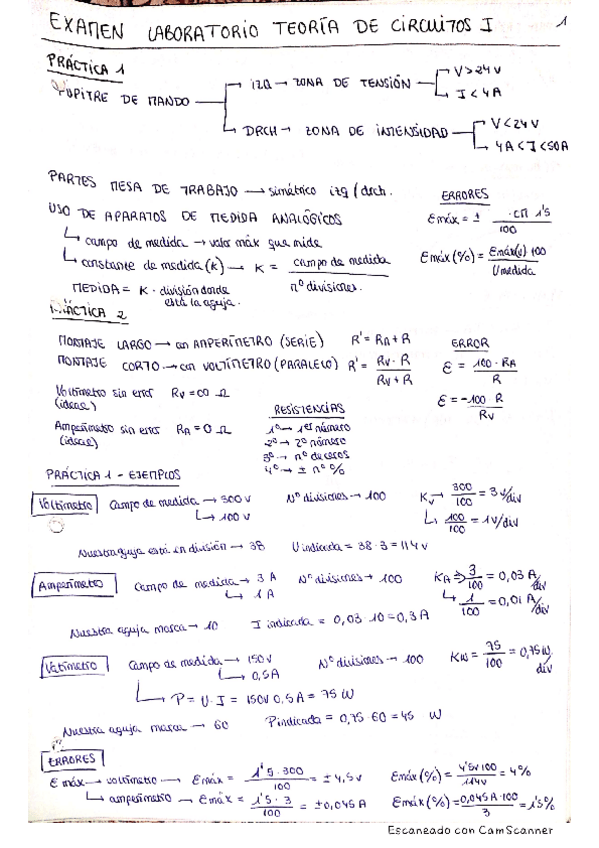 EXAMEN LABORATORIO TEORÍA DE CIRCUITOS I 1
PRÁCTICA 1
PUPITRE DE MANDO → IZQ → ZONA DE TENSIÓN → V>24V
→ I<4A
→ DRCH → ZONA DE INTENSIDAD → V<24V
→ 4A<I<50A
PARTES MESA DE TRABAJO → simétrico izq/drch.
USO DE APARATOS DE MEDIDA ANALÓGICOS
↳ campo de medida → valor máx que mide
↳ constante de medida (k) → K = campo de medida / nº divisiones.
MEDIDA = K · división donde está la aguja.
ERRORES
Emáx = ± CM 1'5 / 100
Emáx (%) = Emáx(v) · 100 / Umedida
PRÁCTICA 2
MONTAJE LARGO → con AMPERÍMETRO (SERIE) R' = RA + R
MONTAJE CORTO → con VOLTÍMETRO (PARALELO) R' = RV · R / RV + R
ERROR
ε = 100 · RA / R
ε = -100 R / RV
Voltímetro sin error (ideal) RV = ∞ Ω
Amperímetro sin error (ideal) RA = 0 Ω
RESISTENCIAS
1º → 1er número
2º → 2º número
3º → nº de ceros
4º → ± nº %
PRÁCTICA 1 - EJEMPLOS
Voltímetro Campo de medida → 300 V Nº divisiones → 100 KV → 300/100 = 3 V/div
↳ 100 V ↳ 100/100 = 1 V/div
Nuestra aguja está en división → 38 U indicada = 38 · 3 = 114 V
Amperímetro Campo de medida → 3 A Nº divisiones → 100 KA ⇒ 3/100 = 0,03 A/div
↳ 1 A ↳ 1/100 = 0,01 A/div
Nuestra aguja marca → 10 I indicada = 0,03 · 10 = 0,3 A
Vatímetro Campo de medida → 150 V Nº divisiones → 100 KW = 75/100 = 0,75 W/div
↳ 0,5 A
↳ P = U · I = 150V 0,5 A = 75 W
Nuestra aguja marca → 60 P indicada = 0,75 · 60 = 45 W
ERRORES
E máx → voltímetro → Emáx = 1'5 · 300 / 100 = ± 4,5 V Emáx (%) = 4'5V 100 / 114V = 4%
↳ amperímetro → Emáx = 1'5 · 3 / 100 = ±0,045 A Emáx (%) = 0,045A · 100 / 3 = 1'5%
Escaneado con CamScanner